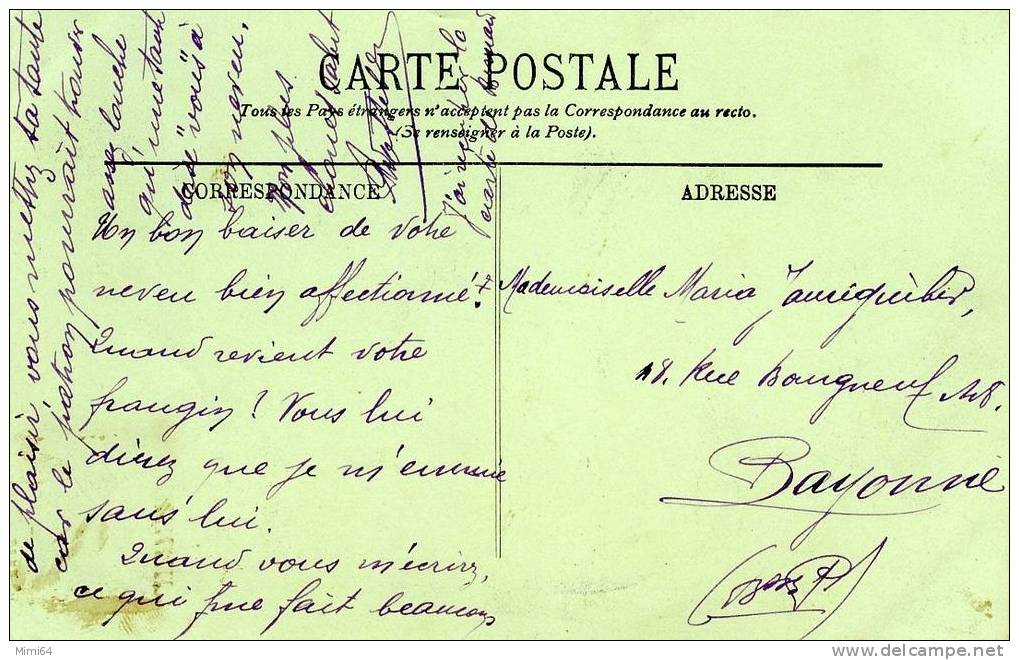 CARTE POSTALE
Tous les Pays étrangers n'acceptent pas la Correspondance au recto.
(Se renseigner à la Poste).
CORRESPONDANCE
Un bon baiser de votre
neveu bien affectionné.
Quand revient votre
frangin? Vous lui
direz que je m'ennuie
sans lui.
Quand vous m'écrirez,
ce qui me fait beaucoup
de plaisir, vous mettrez ta tante
car le patron pourrait trouver
assez louche
qu'une tante
dise "vous" à
son neveu.
Mon plus
cordial salut
J'ai reçu la
carte de
ADRESSE
Mademoiselle Maria Jauréguiber,
18. Rue Bourgneuf, 18.
Bayonne
(Bses P.)
Mimi64
www.delcampe.net